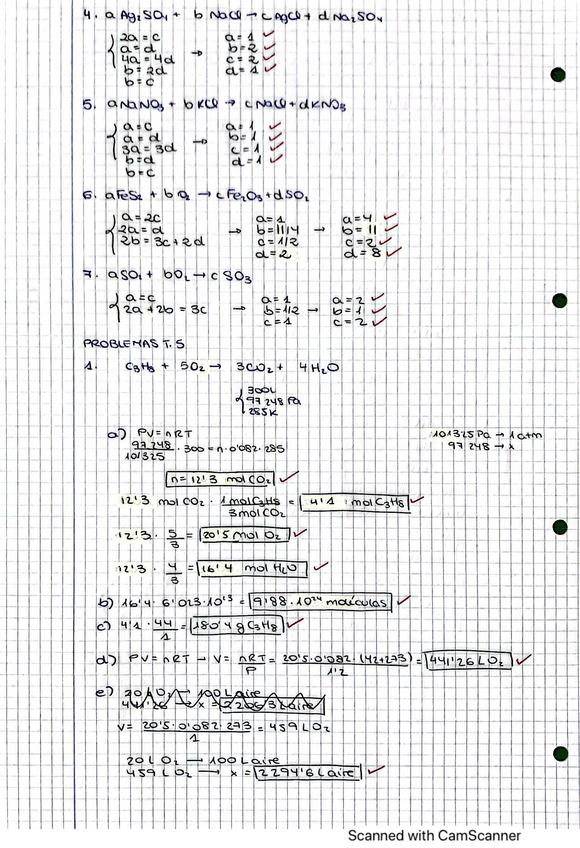 4. a Ag₂SO₄ + b NaCl → c AgCl + d Na₂SO₄
2a = c a = 1 ✓
a = d b = 2 ✓
4a = 4d → c = 2 ✓
b = 2d d = 1 ✓
b = c
5. aNaNO₃ + bKCl → cNaCl + dKNO₃
a = c a = 1 ✓
a = d → b = 1 ✓
3a = 3d c = 1 ✓
b = d d = 1 ✓
b = c
6. aFeS₂ + bO₂ → cFe₂O₃ + dSO₂
a = 2c a = 1 a = 4 ✓
2a = d → b = 11/4 → b = 11 ✓
2b = 3c + 2d c = 1/2 c = 2 ✓
d = 2 d = 8 ✓
7. aSO₂ + bO₂ → cSO₃
a = c a = 1 a = 2 ✓
2a + 2b = 3c → b = 1/2 → b = 1 ✓
c = 1 c = 2 ✓
PROBLEMAS T.5
1. C₃H₈ + 5O₂ → 3CO₂ + 4H₂O
300L
97 248 Pa
285K
a) PV = nRT 101325 Pa → 1 atm
97 248 → x
97 248/101325 · 300 = n · 0'082 · 285
n = 12'3 mol CO₂ ✓
12'3 mol CO₂ · 1 mol C₃H₈/3 mol CO₂ = 4'1 mol C₃H₈ ✓
12'3 · 5/3 = 20'5 mol O₂ ✓
12'3 · 4/3 = 16'4 mol H₂O ✓
b) 16'4 · 6'023 · 10²³ = 9'88 · 10²⁴ moléculas ✓
c) 4'1 · 44/1 = 180'4 g C₃H₈ ✓
d) PV = nRT → V = nRT/P = 20'5 · 0'082 · (42+273)/1'2 = 441'26 L O₂ ✓
e) 20 L O₂ → 100 L aire
441'26 → x = 2206'3 L aire
V = 20'5 · 0'082 · 273/1 = 459 L O₂
20 L O₂ → 100 L aire
459 L O₂ → x = 2294'6 L aire ✓
Scanned with CamScanner